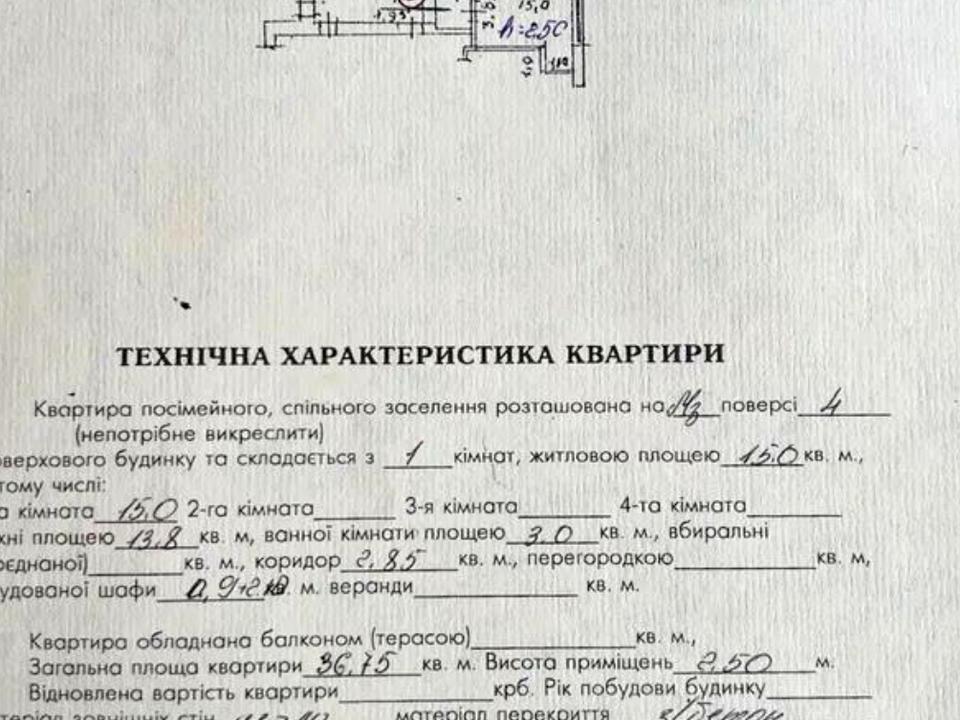 1,93
3,6
15,0
h=2,50
1,0
1,10
ТЕХНІЧНА ХАРАКТЕРИСТИКА КВАРТИРИ
Квартира посімейного, спільного заселення розташована на поверсі 4
(непотрібне викреслити)
оверхового будинку та складається з 1 кімнат, житловою площею 15.0 кв. м.,
тому числі:
а кімната 15,0 2-га кімната 3-я кімната 4-та кімната
хні площею 13,8 кв. м, ванної кімнати площею 3,0 кв. м., вбиральні
рєднаної) кв. м., коридор 2,85 кв. м., перегородкою кв. м,
удованої шафи м. веранди кв. м.
Квартира обладнана балконом (терасою) кв. м.,
Загальна площа квартири 36,75 кв. м. Висота приміщень 2,50 м.
Відновлена вартість квартири крб. Рік побудови будинку
теріал зовнішніх стін матеріал перекриття з/бетон